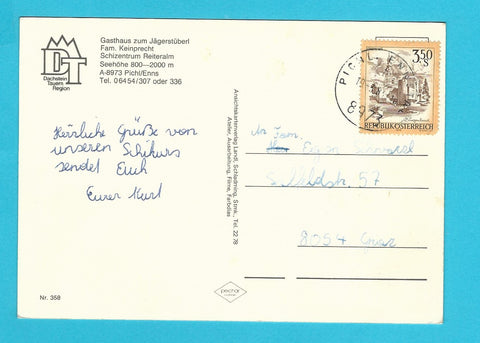 Gasthaus zum Jägerstüberl
Fam. Keinprecht
Schizentrum Reiteralm
Seehöhe 800—2000 m
A-8973 Pichl/Enns
Tel. 06454/307 oder 336
DT
Dachstein
Tauern
Region
Herzliche Grüße von
unserem Schikurs
sendet Euch
Euer Kurt
Nr. 358
Ansichtskartenverlag Landl, Schladming, Stmk., Tel. 22 78
Atelier, Ausarbeitung, Filme, Farbdias
PICHL
8973
3.50
REPUBLIK ÖSTERREICH
An Fam.
57
8054 Graz